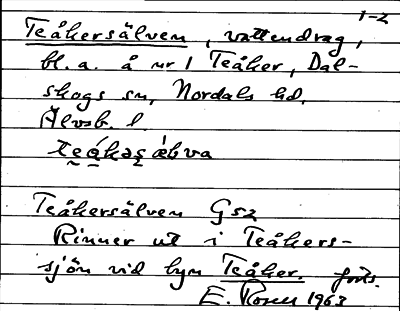 1-2
Teåkersälven, vattendrag,
bl. a. å nr 1 Teåker, Dal-
skogs sn, Nordals hd,
Älvsb. l.
Teåkersälven Gsz
Rinner ut i Teåkers-
sjön vid byn Teåker. forts.
E. Rosell 1963